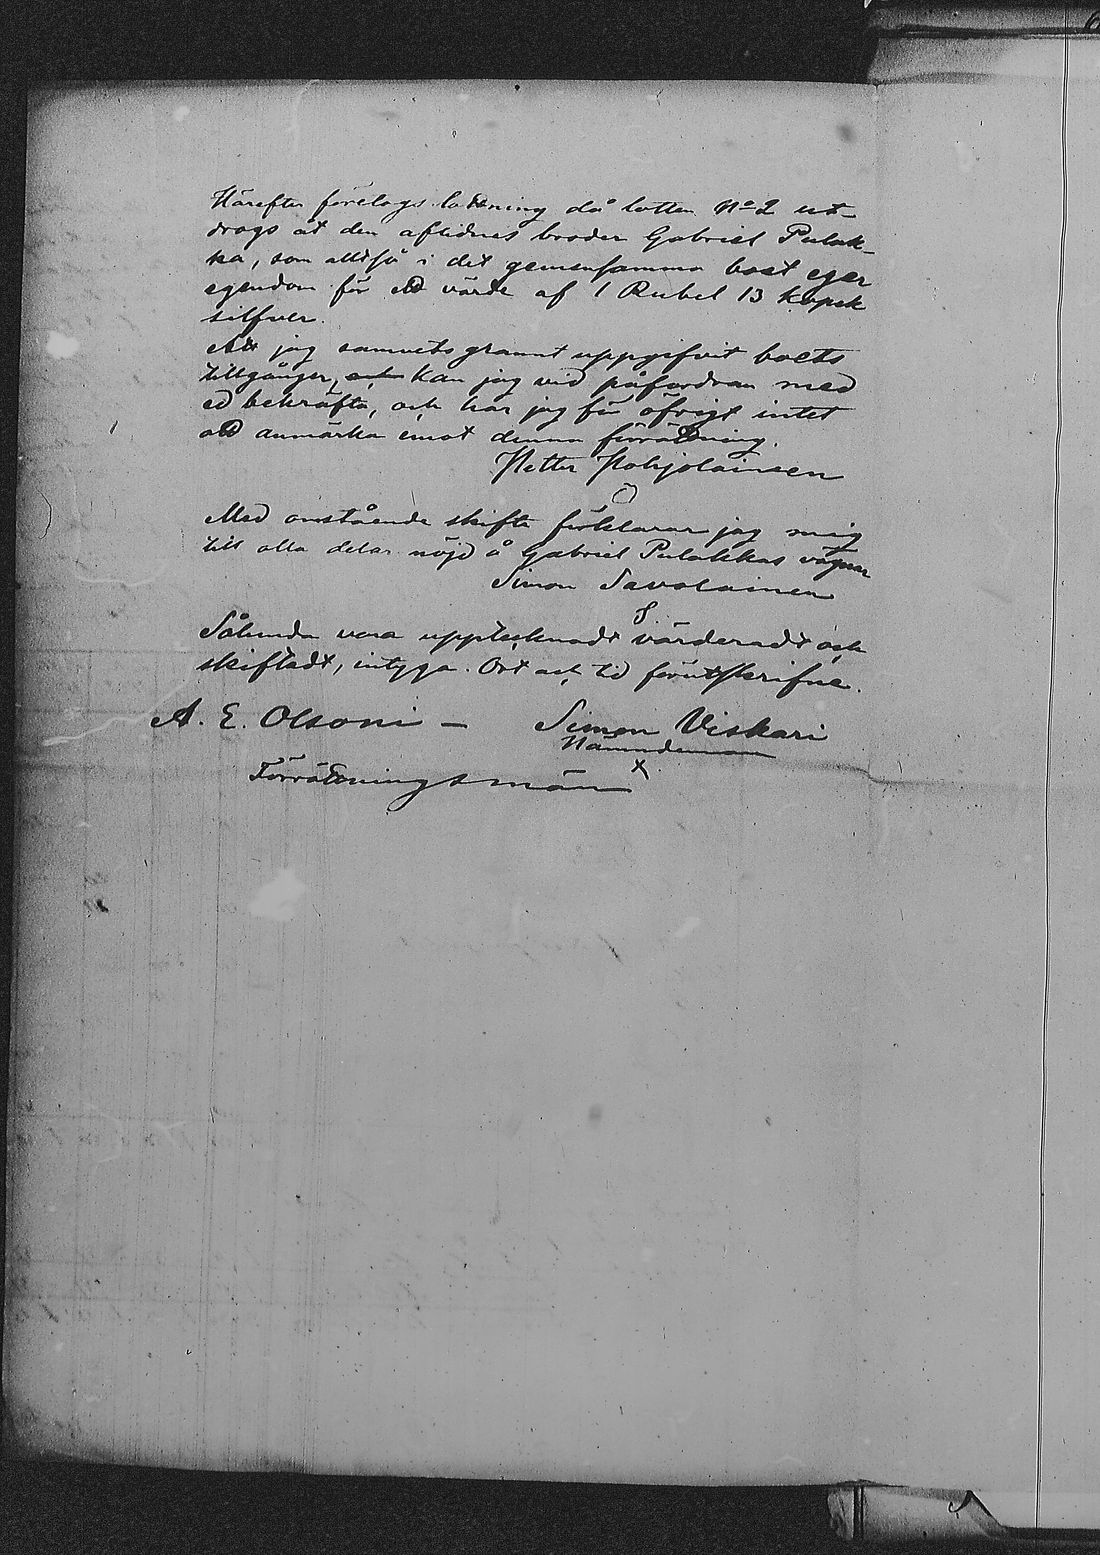 Härefter företogs lottning då lotten No 2 ut-
drogs åt den aflidnes broder Gabriel Pulak-
ka, som alltså i det gemensamma boet eger
egendom för ett värde af 1 Rubel 13 kopek
silfver.
Att jag samvetsgrannt uppgifvit boets
tillgångar, kan jag vid påfordran med
ed bekräfta, och har jag för öfrigt intet
att anmärka emot denna förrättning.
Petter Pohjolainen
Med omstående skifte förklarar jag mig
till alla delar nöjd å Gabriel Pulakkas vägnar
Simon Savolainen
Sålunda vara upptecknadt värderadt och
skiftadt, intyga. Ort och tid förutskrifne.
A. E. Olsoni — Simon Viskari
Nämndeman
X
Förrättningsmän